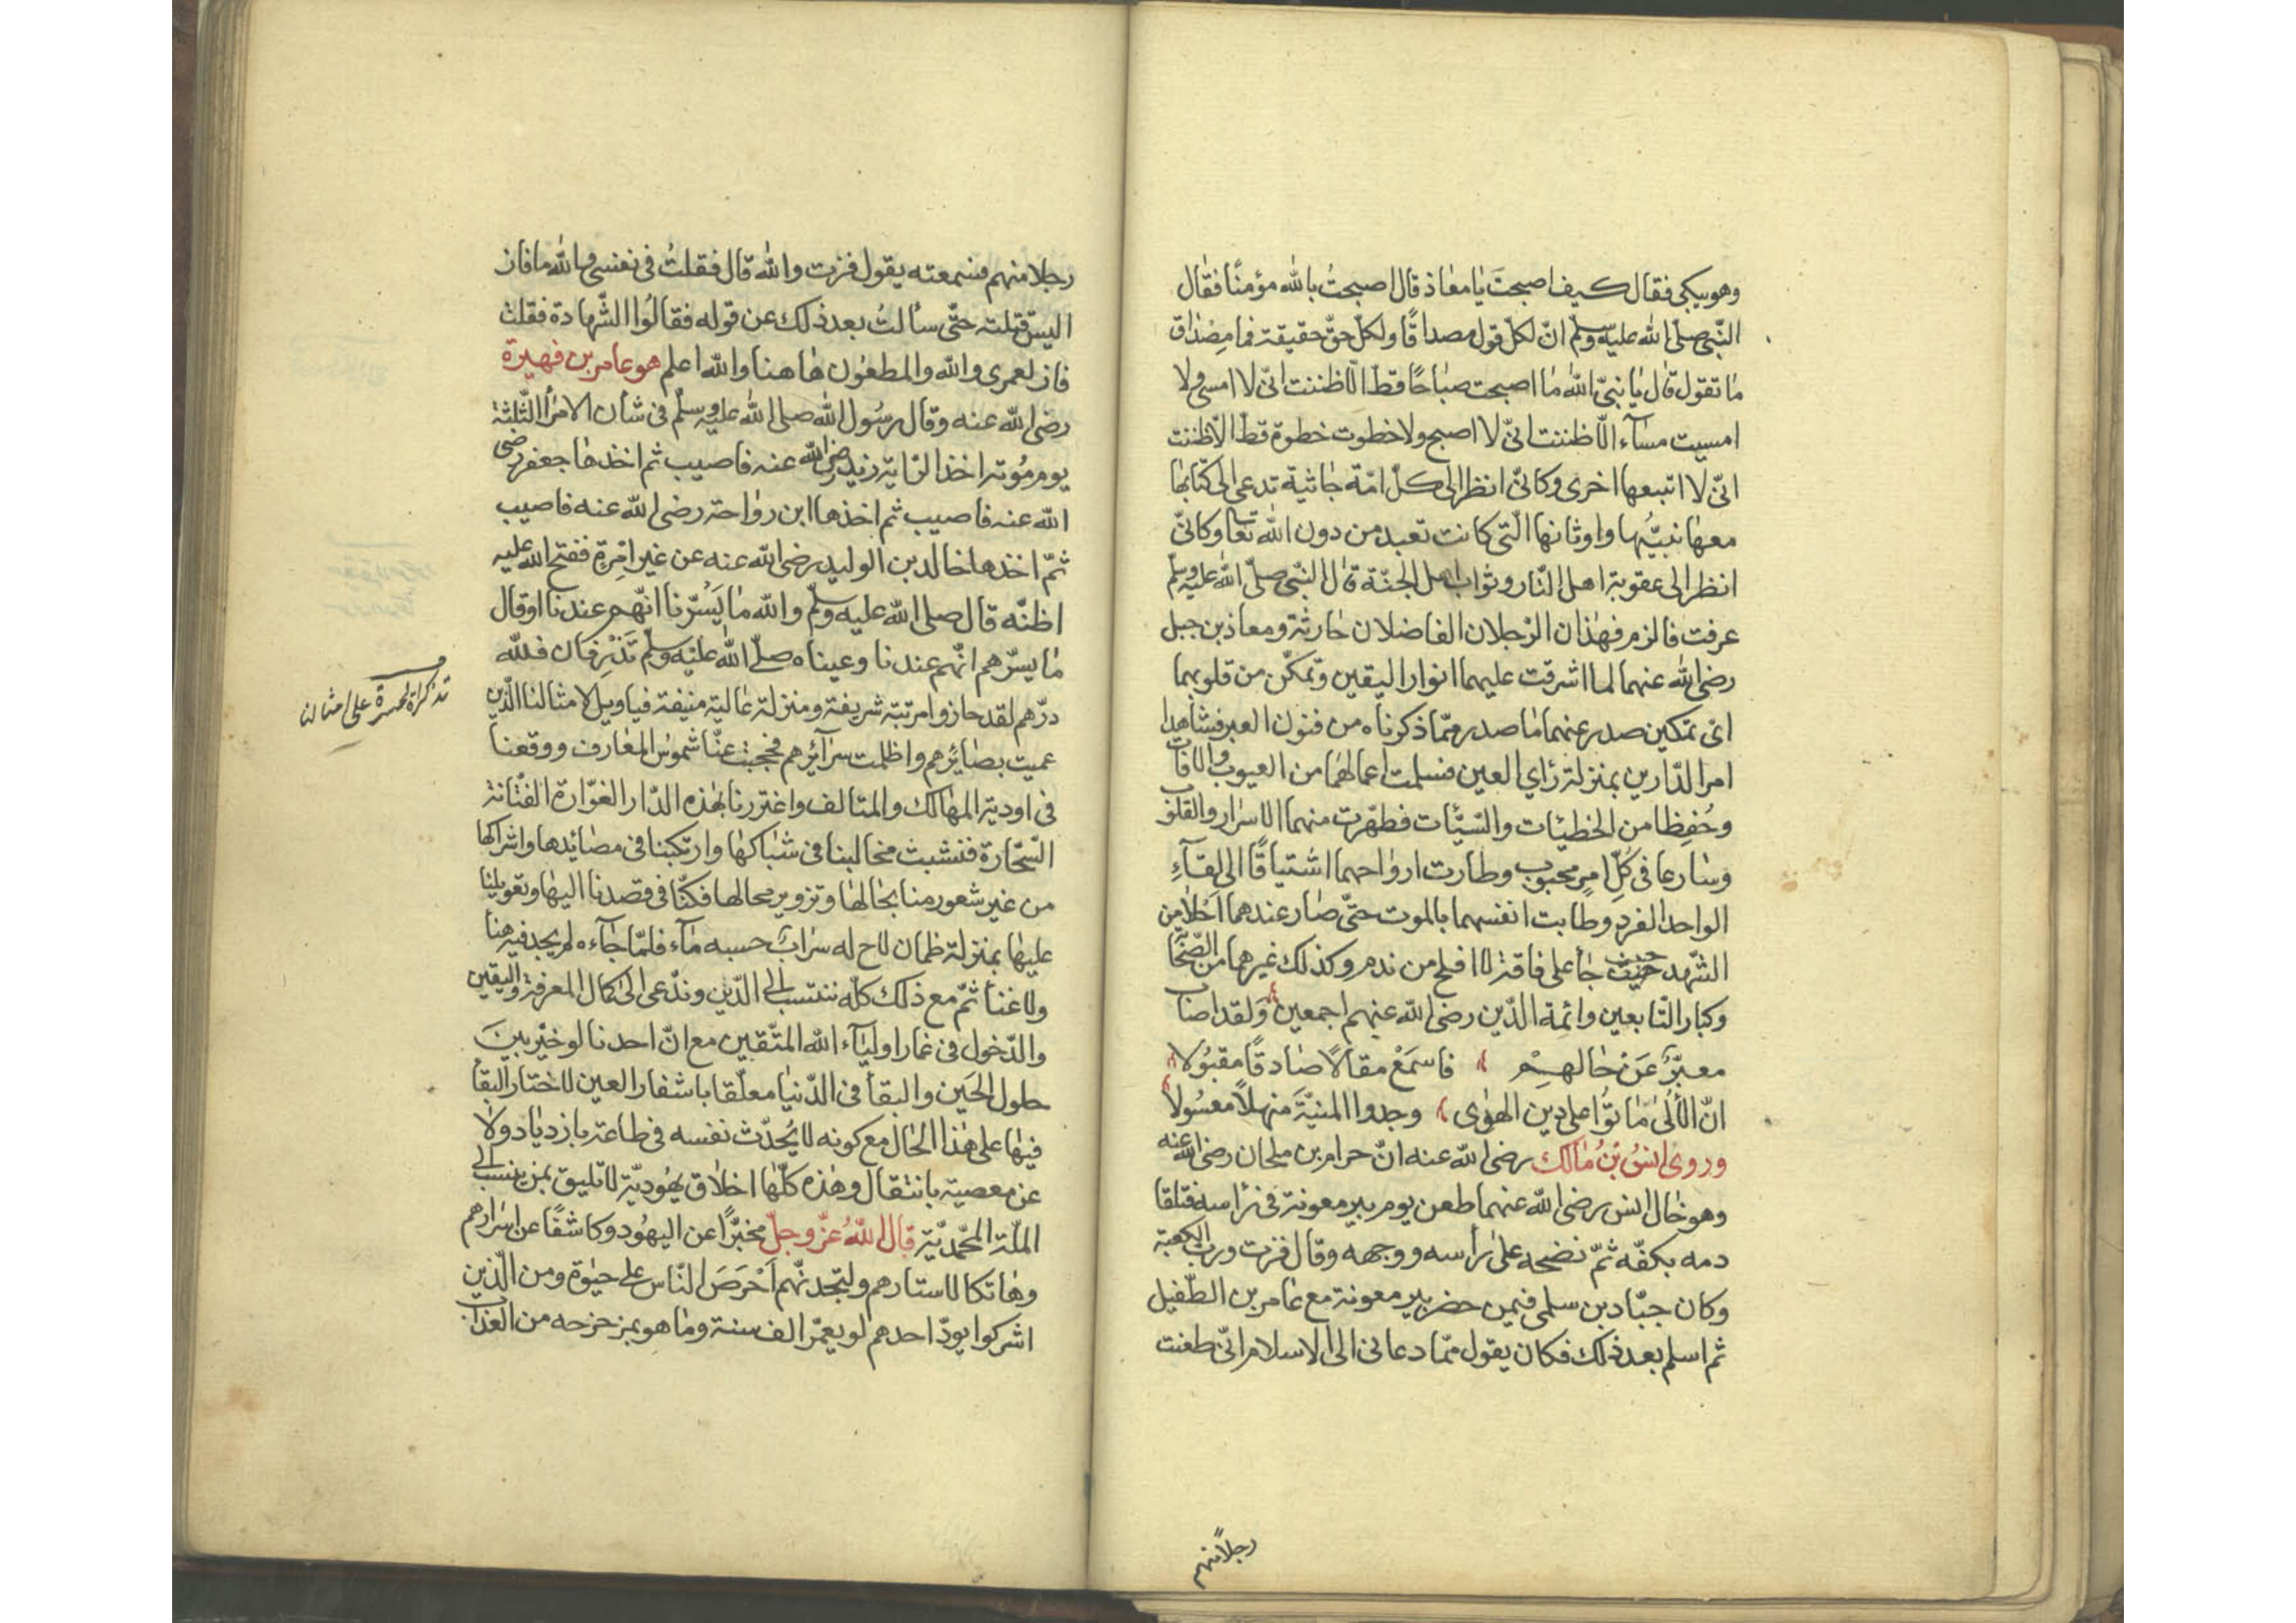 وهو يبكي فقال كيف اصبحتَ يا معاذ قال اصبحتُ بالله مؤمنًا فقال
النّبي صلّى الله عليه وسلّم انّ لكلّ قول مصداقًا ولكلّ حقّ حقيقة فما مصداق
ما تقول قال يا نبيّ الله ما اصبحت صباحًا قطّ الّا ظننت انّي لا امسي ولا
امسيت مسآء الّا ظننت انّي لا اصبح ولا خطوت خطوة قطّ الّا ظننت
انّي لا اتبعها اخرى وكانّي انظر الى كلّ امّة جاثية تدعى الى كتابها
معها نبيّها واوثانها الّتي كانت تعبد من دون الله تعا وكانّي
انظر الى عقوبة اهل النّار وثواب اهل الجنّة قال النّبي صلّى الله عليه وسلّم
عرفت فالزم فهذان الرّجلان الفاضلان حارثة ومعاذ بن جبل
رضي الله عنهما لما اشرقت عليهما انوار اليقين وتمكّن من قلوبهما
ايّ تمكين صدر عنهما ما صدر ممّا ذكرناه من فنون العبر فشاهدا
امر الدّارين بمنزلة رأي العين فسلمت اعمالهما من العيوب والافات
وحُفِظا من الخطيئات والسّيّئات فطهّرت منهما الاسرار والقلوب
وسارعا في كُلِّ امرٍ محبوب وطارت ارواحهما اشتياقًا الى لِقآءِ
الواحد الفرد وطابت انفسهما بالموت حتّى صار عندهما احلا من
الشّهد حبيب جأ على فاقة لا افلح من ندم وكذلك غيرهما من الصّحابة
وكبار التّابعين وائمة الدّين رضي الله عنهم اجمعين وَلقد اصاب
معبّرٌ عَنْ حَالهِمْ فاسمَعْ مقالًا صادقًا مقبُولا
انّ الأُلىٰ مَاتُوا على دين الهوٰى وجدوا المنيّةَ منهلاً معسُولا
وروى انسُ بْنُ مَالك رضي الله عنه انّ حرام بن ملحان رضي الله عنه
وهو خال انس رضي الله عنهما طعن يوم بير معونة في رأسه فتلقا
دمه بكفّه ثمّ نضحه على رأسه ووجهه وقال فزت وربّ الكعبة
وكان جبّاد بن سلمى فيمن حضر بير معونة مع عامر بن الطّفيل
ثم اسلم بعد ذلك فكان يقول ممّا دعاني الى الاسلام انّي طعنت
رجلًا منهم
رجلا منهم فسمعته يقول فزت والله قال فقلتُ في نفسي والله ما فاز
اليسَ قتلته حتّى سألتُ بعد ذلك عن قوله فقالُوا الشّهادة فقلت
فاز لعمري والله والمطعُون هاهنا والله اعلم هو عامر بن فهيرة
رضي الله عنه وقال رسُول الله صلى الله عليه وسلّم في شأن الامرأ الثّلثة
يوم مُوته اخذ الرّاية زيد رضي الله عنه فاصيب ثم اخذها جعفر رضي
الله عنه فاصيب ثم اخذها ابن رواحة رضي الله عنه فاصيب
ثمّ اخذها خالد بن الوليد رضي الله عنه عن غير امْرةٍ ففتح الله عليه
اظنّه قال صلى الله عليه وسلّم والله ما يَسُرّنا انّهم عندنا اوقال
ما يسرّهم انّهم عندنا وعيناه صلّى الله عليه وسلّم تَذْرِفان فللّه
درّهم لقد حازوا مرتبة شريفة ومنزلة عالية منيفة فيا ويل لامثالنا الّذين
عميت بصايرُهم واظلمت سرآئرُهم فحجبت عنّا شموس المعارف ووقعنا
في اودية المهالك والمتالف واغتررنا بهذه الدّار الغرّارة الفتّانة
السّحّارة فنشبت مخالبنا في شباكها وارتكبنا في مصائدها واشراكها
من غير شعور منا بحالها وتزوير محالها فكنّا في قصدنا اليها وتعويلنا
عليها بمنزلة ظمان لاح له سراب حسبه مآء فلمّا جآءه لم يجد فيه هنا
ولا غنأ ثمّ مع ذلك كلّه ننتسب الى الدّين وندّعي الى كمال المعرفة واليقين
والدّخول في غمار اوليآء الله المتّقين مع انّ احدنا لو خيّر بينَ
حلول الحَين والبقأ في الدّنيا معلّقا باشفار العين لاختار البقأ
فيها على هذا الحال مع كونه لا يُحدّث نفسه في طاعة بازدياد ولا
عن معصية بانتقال وهذه كلّها اخلاق يهُوديّة لا تليق بمن ينتسب الى
الملّة المحمّديّة قال اللّهُ عزّ وجلّ مخبّرًا عن اليهُود وكاشفًا عن اسرارهم
وهاتكا لاستارهم ولتجدنّهم اَحْرَصَ النّاس على حيٰوة ومن الّذين
اشركوا يودّ احدهم لو يعمّر الف سنة وما هو بمزحزحه من العذاب
تذكرة لحسرة على امثالنا